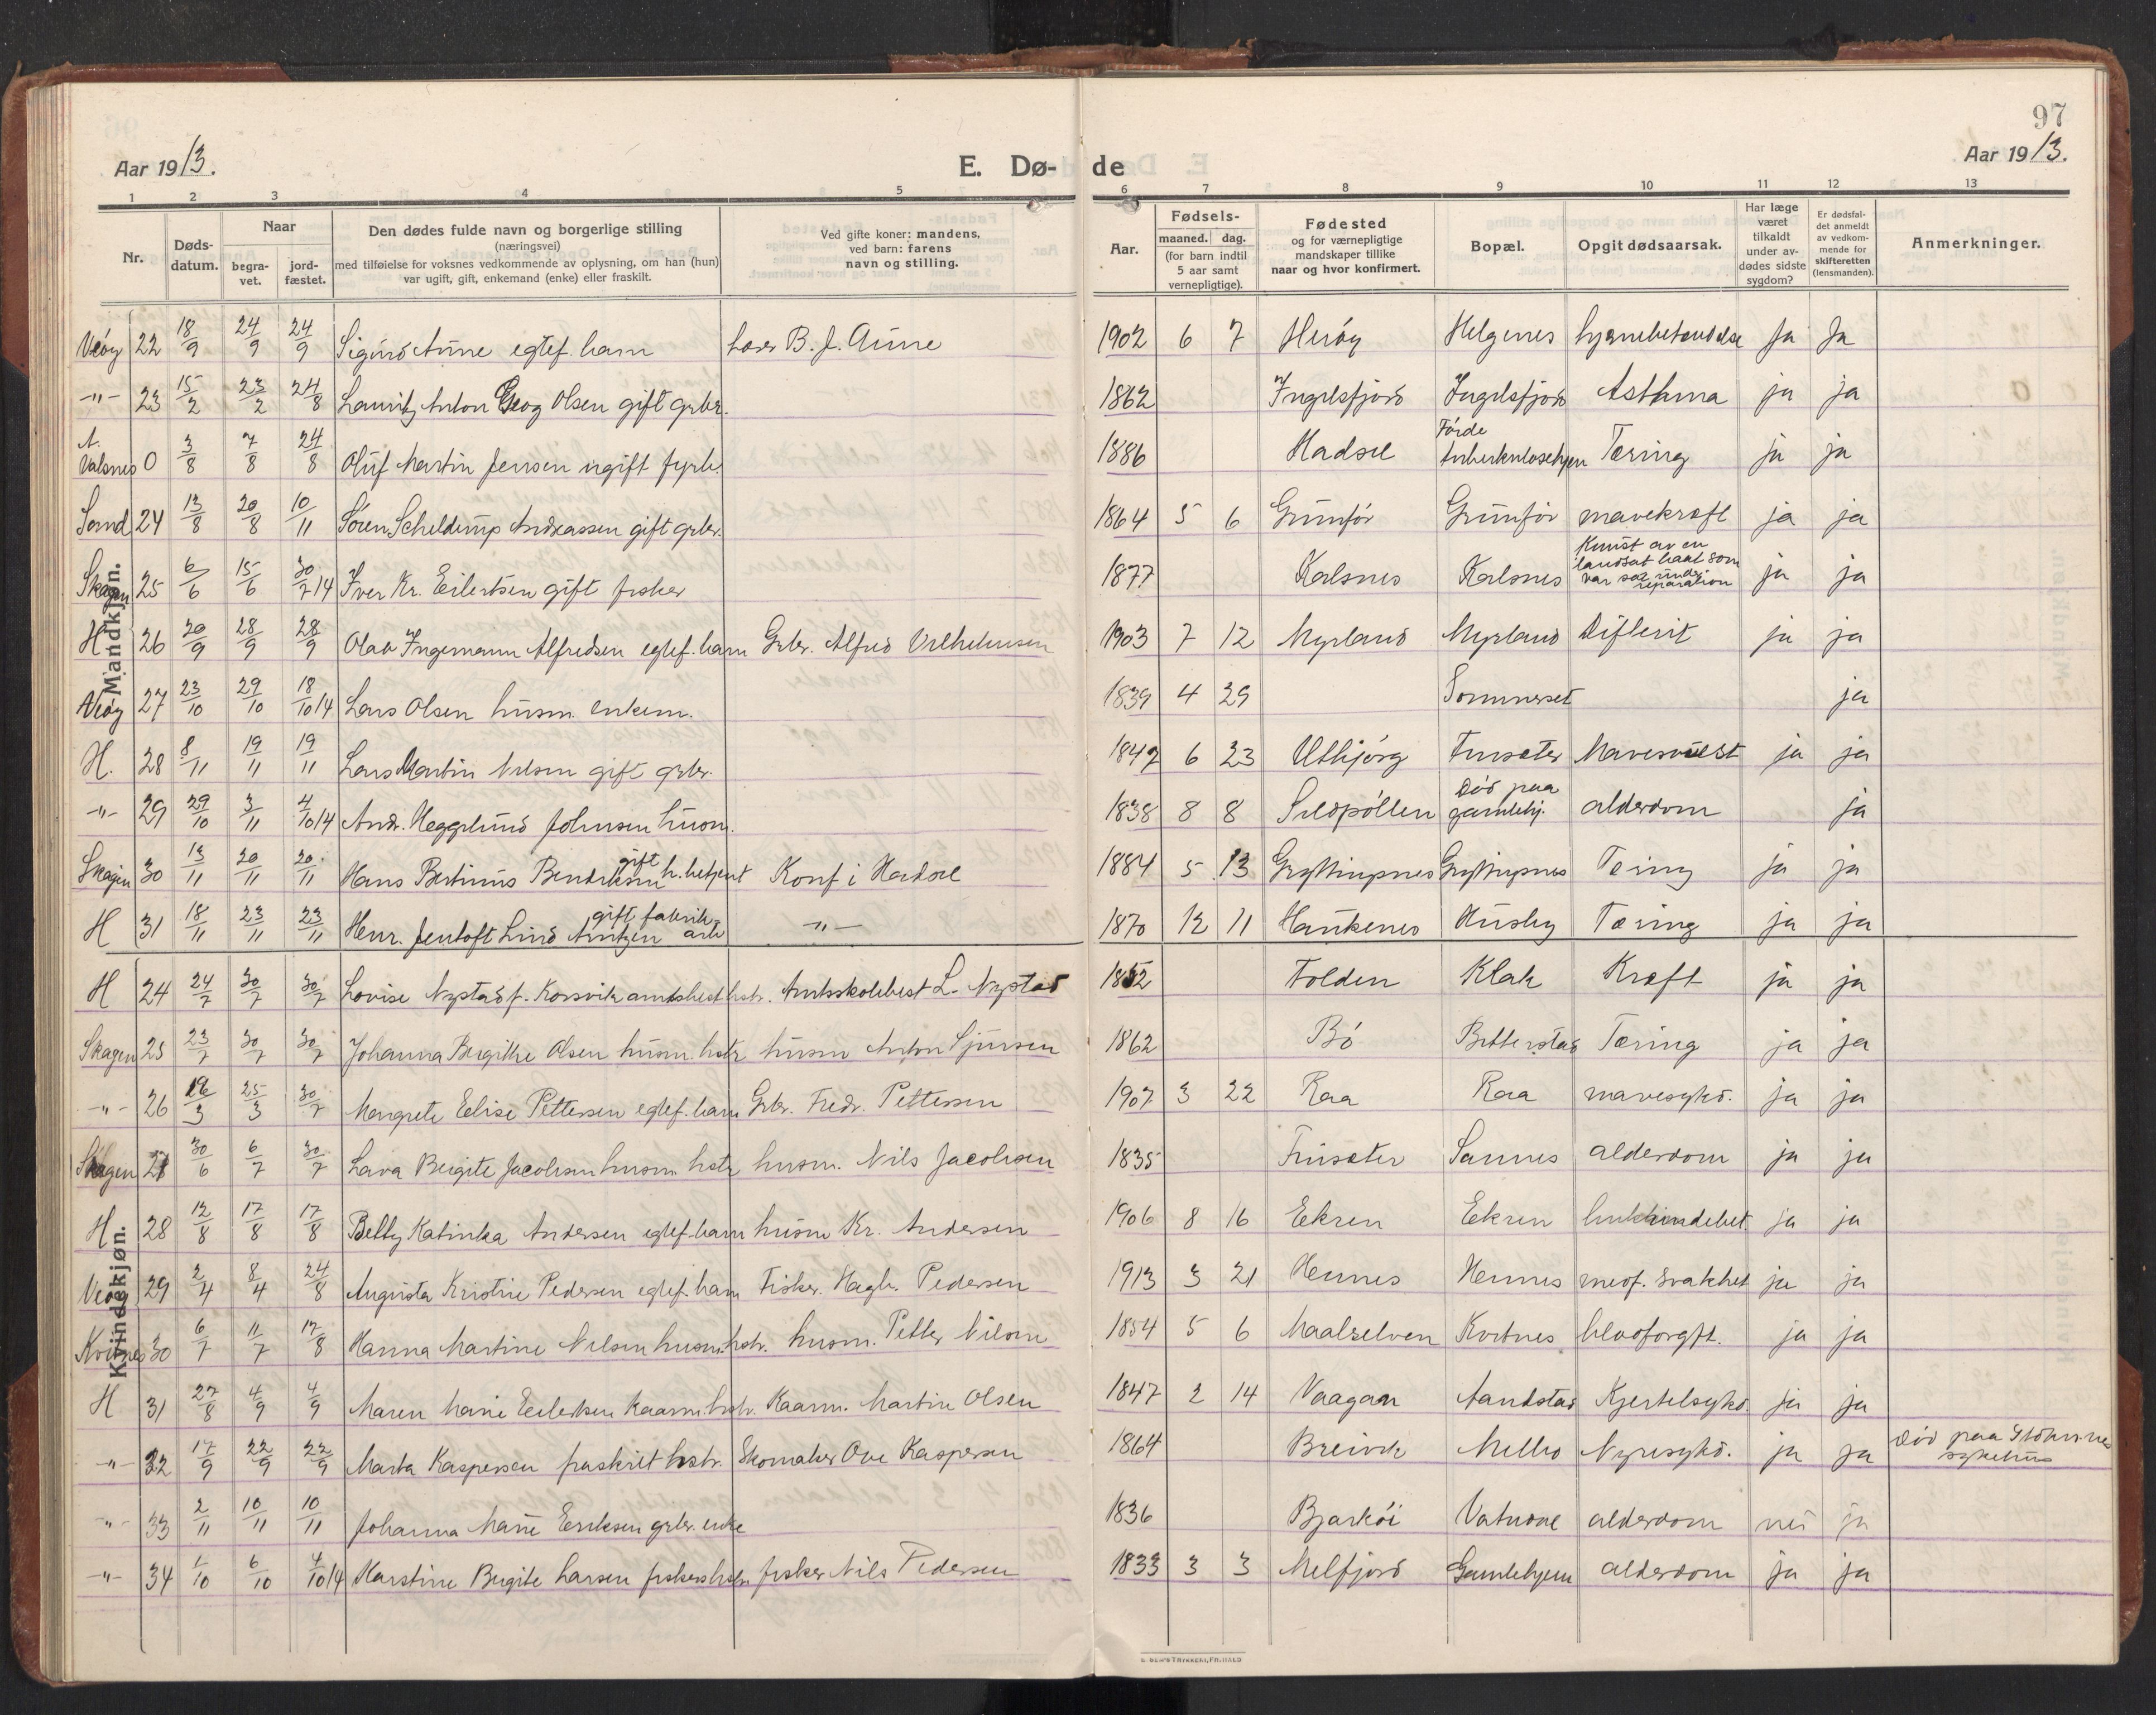 97
Aar 1913.
E. Dø- de
Aar 1913.
1 2 3 4 5 6 7 8 9 10 11 12 13
Nr.
Døds-
datum.
Naar
begra-
vet.
jord-
fæstet.
Den dødes fulde navn og borgerlige stilling
(næringsvei)
med tilføielse for voksnes vedkommende av oplysning, om han (hun)
var ugift, gift, enkemand (enke) eller fraskilt.
Ved gifte koner: mandens,
ved barn: farens
navn og stilling.
Aar.
Fødsels-
maaned. dag.
(for barn indtil
5 aar samt
vernepligtige).
Fødested
og for værnepligtige
mandskaper tillike
naar og hvor konfirmert.
Bopæl.
Opgit dødsaarsak.
Har læge
været
tilkaldt
under av-
dødes sidste
sygdom?
Er dødsfal-
det anmeldt
av vedkom-
mende for
skifteretten
(lensmanden).
Anmerkninger.
Mandkjøn.
22 18/9 24/9 24/9 Sigurd Aune egtef. barn B. J. Aune 1902 6 7 Helgenes Ja Ja
-"- 23 15/2 23/2 24/8 Lauritz Anton Georg Olsen gift grbr. 1862 Ingelsfjord Ingelsfjord Asthma ja ja
Valsnes 0 3/8 7/8 24/8 Oluf Martin Jensen ugift 1886 Hadsel Førde Tæring ja ja
Sand 24 13/8 20/8 10/11 Søren Scheldrup Andreassen gift grbr. 1864 5 6 Grunfør Grunfør mavekræft ja ja
Skagen 25 6/6 15/6 30/7 14 Iver Kr. Eilertsen gift fisker 1877 Kalsnes Kalsnes Knust av en
landsat baat som
var under
reparation ja ja
H 26 20/9 28/9 28/9 Olav Ingemann Alfredsen egtef. barn Grbr. Alfred Vilhelmsen 1903 7 12 Myrland Myrland Difterit ja ja
27 23/10 29/10 18/10 14 Lars Olsen husm. enkem. 1839 4 29 Sommerset ja
H. 28 8/11 19/11 19/11 Lars Martin Nilsen gift grbr. 1842 6 23 Utbjørg Fuisæter Mavesvulst ja ja
-"- 29 29/10 3/11 4/10 14 Andr. Hegglund Johnsen husm. 1838 8 8 Sildpollen Død paa
gamlehj. alderdom ja
Skagen 30 13/11 20/11 20/11 Hans Bertinus Bendiksen gift h. betjent Konf i Hadsel 1884 5 13 Tæring ja ja
H 31 18/11 23/11 23/11 Henr. Jentoft Lind Arntzen gift fabrik-
arb -"- 1870 12 11 Haukenes Husby Tæring ja ja
Kvindekjøn.
H 24 24/7 30/7 30/7 Lovise Nystad f. Korsvik Amtsskolebest L. Nystad 1852 Folden Klak Kræft ja ja
Skagen 25 23/7 30/7 30/7 Johanna Birgitte Olsen husm. hstr husm Anton Sjursen 1862 Bø Bitterstad Tæring ja ja
-"- 26 16/3 25/3 30/7 Margrete Elise Pettersen egtef. barn Grbr. Fredr. Pettersen 1907 3 22 Raa Raa mavesykd. ja ja
Skagen 27 30/6 6/7 30/7 Lava Birgite Jacobsen husm hstr husm. Nils Jacobsen 1835 Fuisæter Sannes alderdom ja ja
H. 28 12/8 17/8 17/8 Betty Katinka Andersen egtef. barn husm Kr. Andersen 1906 8 16 Ekren Ekren ja ja
29 2/4 8/4 24/8 Augusta Kristine Pedersen egtef. barn Fisker. Hagb. Pedersen 1913 3 21 Hennes Hennes medf. svakhet ja ja
Kvitnes 30 6/7 11/7 17/8 Hanna Martine Nilsen husm. hstr. husm. Petter Nilsen 1854 5 6 Maalselven Kvitnes blodforgft. ja ja
H 31 27/8 4/9 4/9 Maren Marie Eilertsen kaarm. hstr. Kaarm. Martin Olsen 1847 2 14 Vaagan Sandstad Kjertelsykd. ja ja
-"- 32 17/9 22/9 22/9 Marta Kaspersen fraskilt hstr. Skomaker Ove Kaspersen 1864 Breivik Melbo Nyresykd. ja ja Død paa Stokmarknes
sykehus
-"- 33 2/11 10/11 10/11 Johanna Marie Eriksen grbr. enke 1836 Bjarkøi Vatndal alderdom nei ja
-"- 34 1/10 6/10 4/10 14 Karstine Birgite Larsen fiskers hstr. fisker Nils Pedersen 1833 3 3 Melfjord Gamlehjem alderdom ja ja